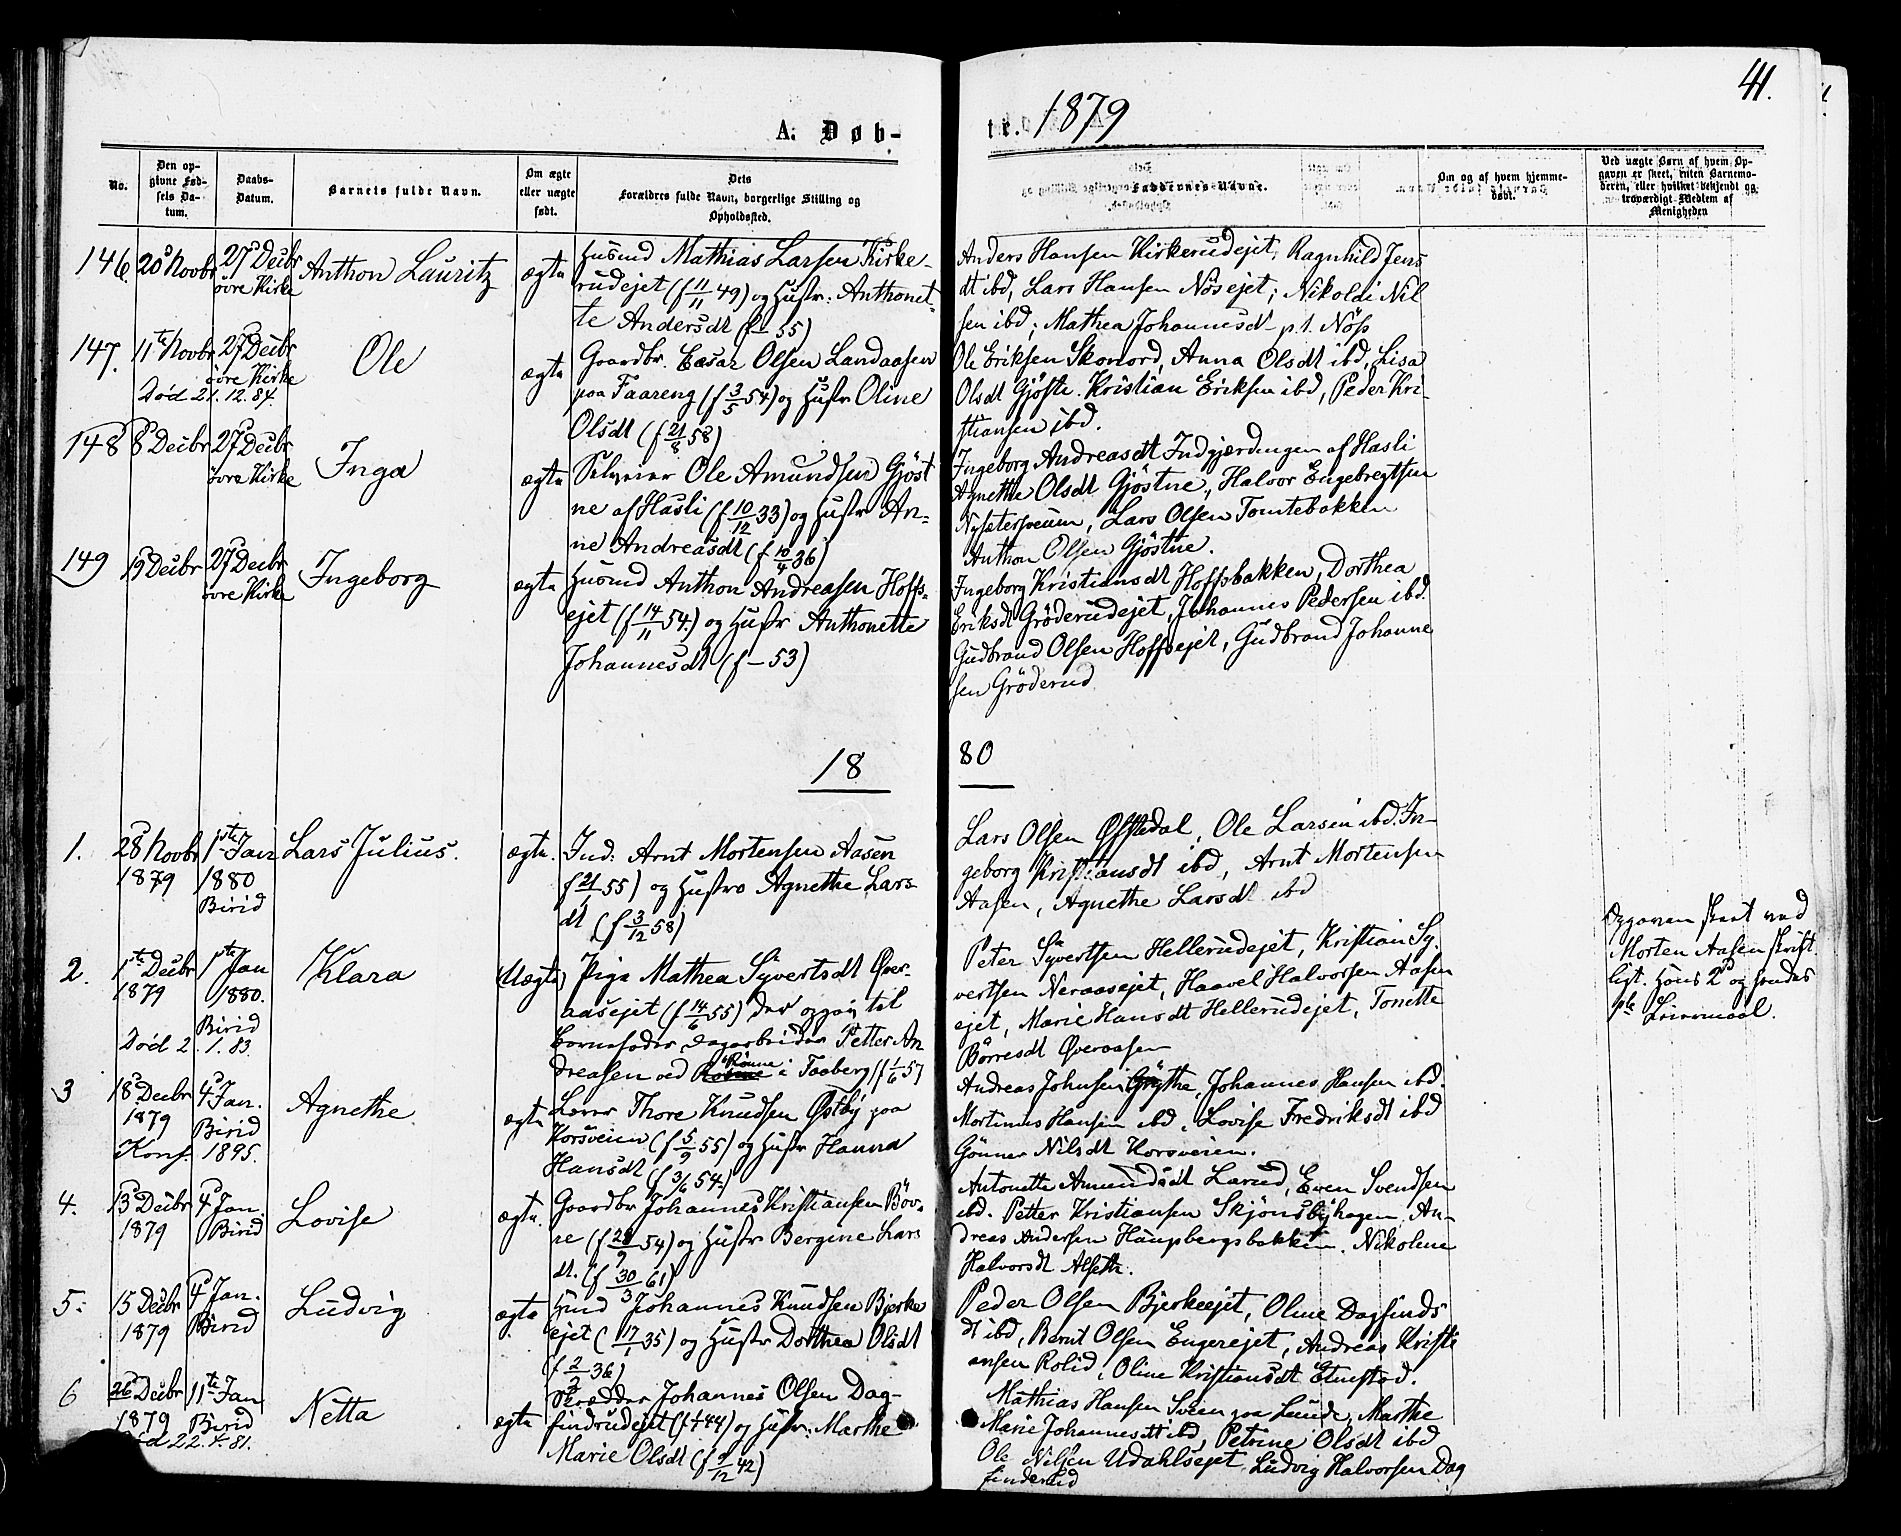 41.
A. Døb-
te. 1879
No.
Den op-
givne Fød-
sels Da-
tum.
Daabs-
Datum.
Barnets fulde Navn.
Om ægte
eller uægte
født.
Dets
Forældres fulde Navn, borgerlige Stilling og
Opholdssted.
Faddernes Navne.
Om og af hvem hjemme-
døbt.
Ved uægte Børn af hvem Op-
gaven er skeet, enten Barnemo-
deren, eller hvilket bekjendt og
troværdigt Medlem af
Menigheden
146. 20 Novbr 27 Decbr
övre Kirke
Anthon Lauritz
ægte
Husmd Mathias Larsen Kirke-
rudejet (f 11/11 49) og Hustr: Anthonet-
te Andersdt (f – 55)
Anders Hansen Kirkerudejet, Ragnhild Jens
dt ibd, Lars Hansen Nösejet; Nikolai Nil
sen ibd; Mathea Johannesdt p.t. Nöss
147. 11te Novbr 27 Decbr
övre Kirke
Död 21.12.84.
Ole
ægte
Gaardbr. Cæsar Olsen Landaasen
paa Faareng (f 3/5 54) og Hustr Oline
Olsdt (f 21/8 58)
Ole Eriksen Skonord, Anna Olsdt ibd, Lisa
Olsdt Gjöste. Kristian Eriksen ibd, Peder Kri-
stiansen ibd.
148 8 Decbr 27 Decbr
övre Kirke
Inga
ægte
Selveier Ole Amundsen Gjöst
ne af Hasli (f 10/12 33) og Hustr An-
ne Andreasdt (f 10/4 36)
Ingeborg Andreasdt Indgjærdingen af Hasli
Agnethe Olsdt Gjöstne, Halvor Engebregtsen
Nysætersveum, Lars Olsen Tomtebakken
Anthon Olsen Gjöstne.
149 19 Decbr 27 Decbr
övre Kirke
Ingeborg
ægte
Husmd Anthon Andreasen Hoffs-
ejet (f 14/11 54.) og Hustr Anthonette
Johannesdt (f – 53)
Ingeborg Kristiansdt Hoffsbakken, Dorthea
Eriksdt Gröderudejet, Johannes Pedersen ibd.
Gudbrand Olsen Hoffsejet, Gudbrand Johanne
sen Gröderud
18 80
1. 28 Novbr 1ste Jan
1879 1880
Birid
Lars Julius.
ægte.
Ind: Arnt Mortensen Aasen
f 21/1 55) og Hustro Agnethe Lars
dt (f 3/12 58)
Lars Olsen Øfstedal, Ole Larsen ibd. In-
geborg Kristiansdt ibd, Arnt Mortensen
Aasen, Agnethe Larsdt ibd
2. 1ste Decbr 1ste Jan
1879 1880.
Birid
Död 2.1.83.
Klara
(Uægte)
Pige Mathea Syvertsdt Över-
aasejet (f 14/6 55) der opgav til
Barnefader, dagarbeider Petter An
dreasen ved Rönne i Faaberg (f 1/6 57
Peter Syvertsen Hellerudejet, Kristian Sy.
vertsen Neraasejet, Haavel Halvorsen Aasen
ejet, Marie Hansdt Hellerudejet, Tonette
Börresdt Överaasen
Opgaven skeet ved
Morten Aasen skrift
ligt. Hans 2d og hendes
1ste Leiermaal.
3 18 Decbr 4 Jan.
1879 Birid
Konf. 1895.
Agnethe
ægte
Lærer Thore Knudsen Østby paa
Korsveien (f 5/9 55) og Hustr Hanna
Hansdt (f 3/6 54.)
Andreas Johnsen Grythe, Johannes Hansen ibd.
Mortinus Hansen ibd, Lovise Fredriksdt ibd
Gönner Nilsdt Korsveien.
4. 13 Decbr 4 Jan.
1879 Birid
Lovise
ægte.
Gaardbr Johannes Kristiansen Böv-
re (f 28/9 54) og Hustr Bergine Lars
dt. (f 30/3 61)
Antonette Amundsdt Larud, Even Svendsen
ibd. Petter Kristiansen Skjönsbyhagen, An-
dreas Andersen Haugsbergsbakken. Nikoline
Halvorsdt Alseth.
5. 15 Decbr 4 Jan.
1879 Birid
Ludvig
ægte
Husmd Johannes Knudsen Bjerke
ejet ( 17/1 35) og Hustr Dorthea Olsdt
(f 2/2 36)
Peder Olsen Bjerkeejet, Oline Dagfinds
dt ibd, Bernt Olsen Engerejet, Andreas Kristi
ansen Rolid, Oline Kristiansdt Elvestad.
6 26 Decbr 11te Jan
1879 Birid
Död 22.4.81.
Netta
ægte
Skrædder Johannes Olsen Dag-
findrudejet (f 1/1 44) og Hustr: Marthe
Marie Olsdt (f 9/12 42)
Mathias Hansen Sveen paa Lunde, Marthe
Marie Johannesdt ibd, Petrine Olsdt ibd
Ole Nilsen Udahlsejet, Ludvig Halvorsen Dag
finderud